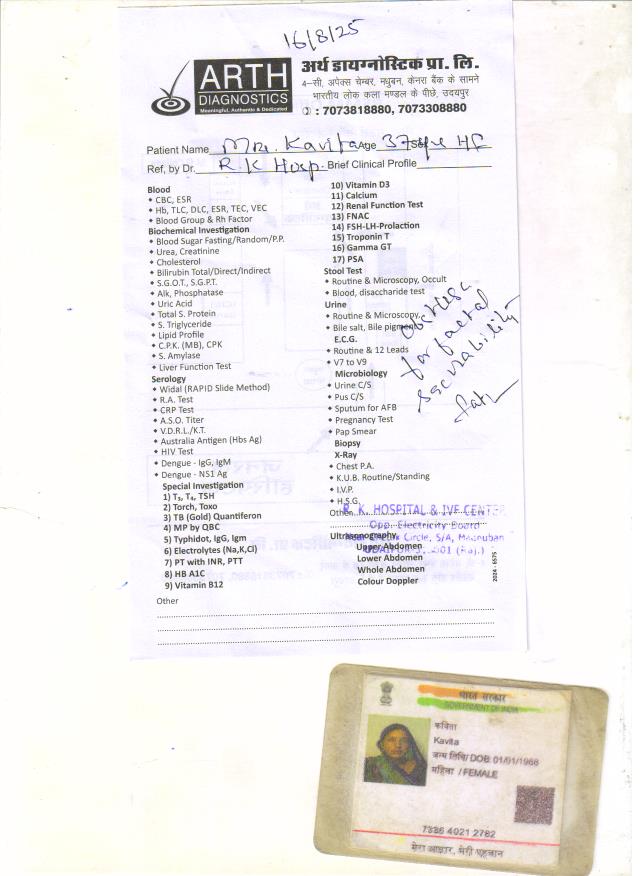 16/8/25
ARTH
DIAGNOSTICS
Meaningful, Authentic & Dedicated
अर्थ डायग्नोस्टिक प्रा. लि.
4–सी, अपेक्स चेम्बर, मधुबन, केनरा बैंक के सामने
भारतीय लोक कला मण्डल के पीछे, उदयपुर
: 7073818880, 7073308880
Patient Name Mrs. Kavita Age 37
Ref, by Dr. R.K Hosp. Brief Clinical Profile
Blood
CBC, ESR
Hb, TLC, DLC, ESR, TEC, VEC
Blood Group & Rh Factor
Biochemical Investigation
Blood Sugar Fasting/Random/P.P.
Urea, Creatinine
Cholesterol
Bilirubin Total/Direct/Indirect
S.G.O.T., S.G.P.T.
Alk, Phosphatase
Uric Acid
Total S. Protein
S. Triglyceride
Lipid Profile
C.P.K. (MB), CPK
S. Amylase
Liver Function Test
Serology
Widal (RAPID Slide Method)
R.A. Test
CRP Test
A.S.O. Titer
V.D.R.L./K.T.
Australia Antigen (Hbs Ag)
HIV Test
Dengue - IgG, IgM
Dengue - NS1 Ag
Special Investigation
1) T₃, T₄, TSH
2) Torch, Toxo
3) TB (Gold) Quantiferon
4) MP by QBC
5) Typhidot, IgG, Igm
6) Electrolytes (Na,K,Cl)
7) PT with INR, PTT
8) HB A1C
9) Vitamin B12
10) Vitamin D3
11) Calcium
12) Renal Function Test
13) FNAC
14) FSH-LH-Prolaction
15) Troponin T
16) Gamma GT
17) PSA
Stool Test
Routine & Microscopy, Occult
Blood, disaccharide test
Urine
Routine & Microscopy
Bile salt, Bile pigment
E.C.G.
Routine & 12 Leads
V7 to V9
Microbiology
Urine C/S
Pus C/S
Sputum for AFB
Pregnancy Test
Pap Smear
Biopsy
X-Ray
Chest P.A.
K.U.B. Routine/Standing
I.V.P.
H.S.G.
Other
Ultrasonography
Upper Abdomen
Lower Abdomen
Whole Abdomen
Colour Doppler
for
R. K. HOSPITAL & IVF CENTER
Opp. Electricity Board
Circle, 5/A, Madhuban
(Raj.)
2024 - 6575
Other
भारत सरकार
GOVERNMENT OF INDIA
कविता
Kavita
जन्म तिथि/ DOB: 01/01/1988
महिला / FEMALE
7386 4021 2782
मेरा आधार, मेरी पहचान